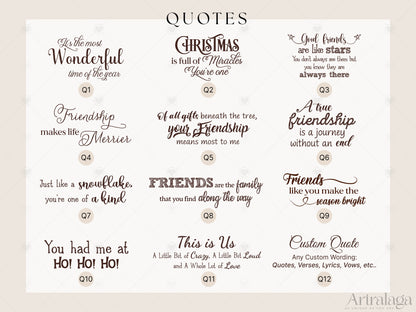 QUOTES
It's the most
Wonderful
time of the year
Q1
CHRISTMAS
is full of Miracles
You're one
Q2
Good friends
are like stars
You don't always see them but
you know they are
always there
Q3
Friendship
makes life Merrier
Q4
Of all gifts beneath the tree,
your Friendship
means most to me
Q5
A true
friendship
is a journey
without an end
Q6
Just like a snowflake,
you're one of a kind
Q7
FRIENDS are the family
that you find along the way
Q8
Friends
like you make the
season bright
Q9
You had me at
HO! HO! HO!
Q10
This is Us
A Little Bit of Crazy, A Little Bit Loud
and A Whole Lot of Love
Q11
Custom Quote
Any Custom Wording:
Quotes, Verses, Lyrics, Vows, etc..
Q12
Artralaga